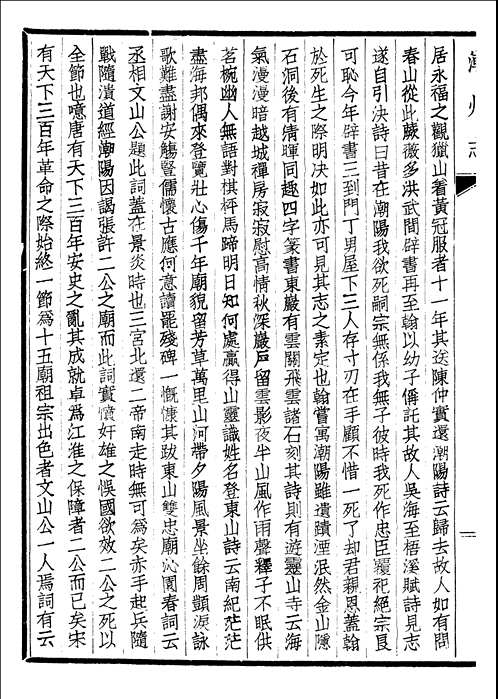 潮州志
居永福之觀獵山着黃冠服者十一年其送陳仲實還潮陽詩云歸去故人如有問
春山從此蕨薇多洪武間辟書再至翰以幼子僑託其故人吳海至梧溪賦詩見志
遂自引決詩曰昔在潮陽我欲死嗣宗無係我無子彼時我死作忠臣覆祀絕宗良
可恥今年辟書三到門丁男屋下三人存寸刃在手顧不惜一死了却君親恩蓋翰
於死生之際明決如此亦可見其志之素定也翰嘗寓潮陽雖遺蹟湮泯然金山隱
石洞後有清暉同趣四字篆書東巖有雲關飛雲諸石刻其詩則有遊靈山寺云海
氣漫漫暗越城禪房寂寂慰高情秋深巖戶留雲影夜半山風作雨聲釋子不眠供
茗椀幽人無語對棋枰馬蹄明日知何處贏得山靈識姓名登東山詩云南紀茫茫
盡海邦偶來登覽壯心傷千年廟貌留芳草萬里山河帶夕陽風景坐餘周顗淚詠
歌難盡謝安觴豎儒懷古應何意讀罷殘碑一慨慷其跋東山雙忠廟沁園春詞云
丞相文山公題此詞蓋在景炎時也三宮北還二帝南走時無可為矣亦手起兵隨
戰隨潰道經潮陽因謁張許二公之廟而此詞實憤奸雄之悞國欲效二公之死以
全節也噫唐有天下三百年安史之亂其成就卓為江淮之保障者二公而已矣宋
有天下三百年革命之際始終一節為十五廟祖宗出色者文山公一人焉詞有云